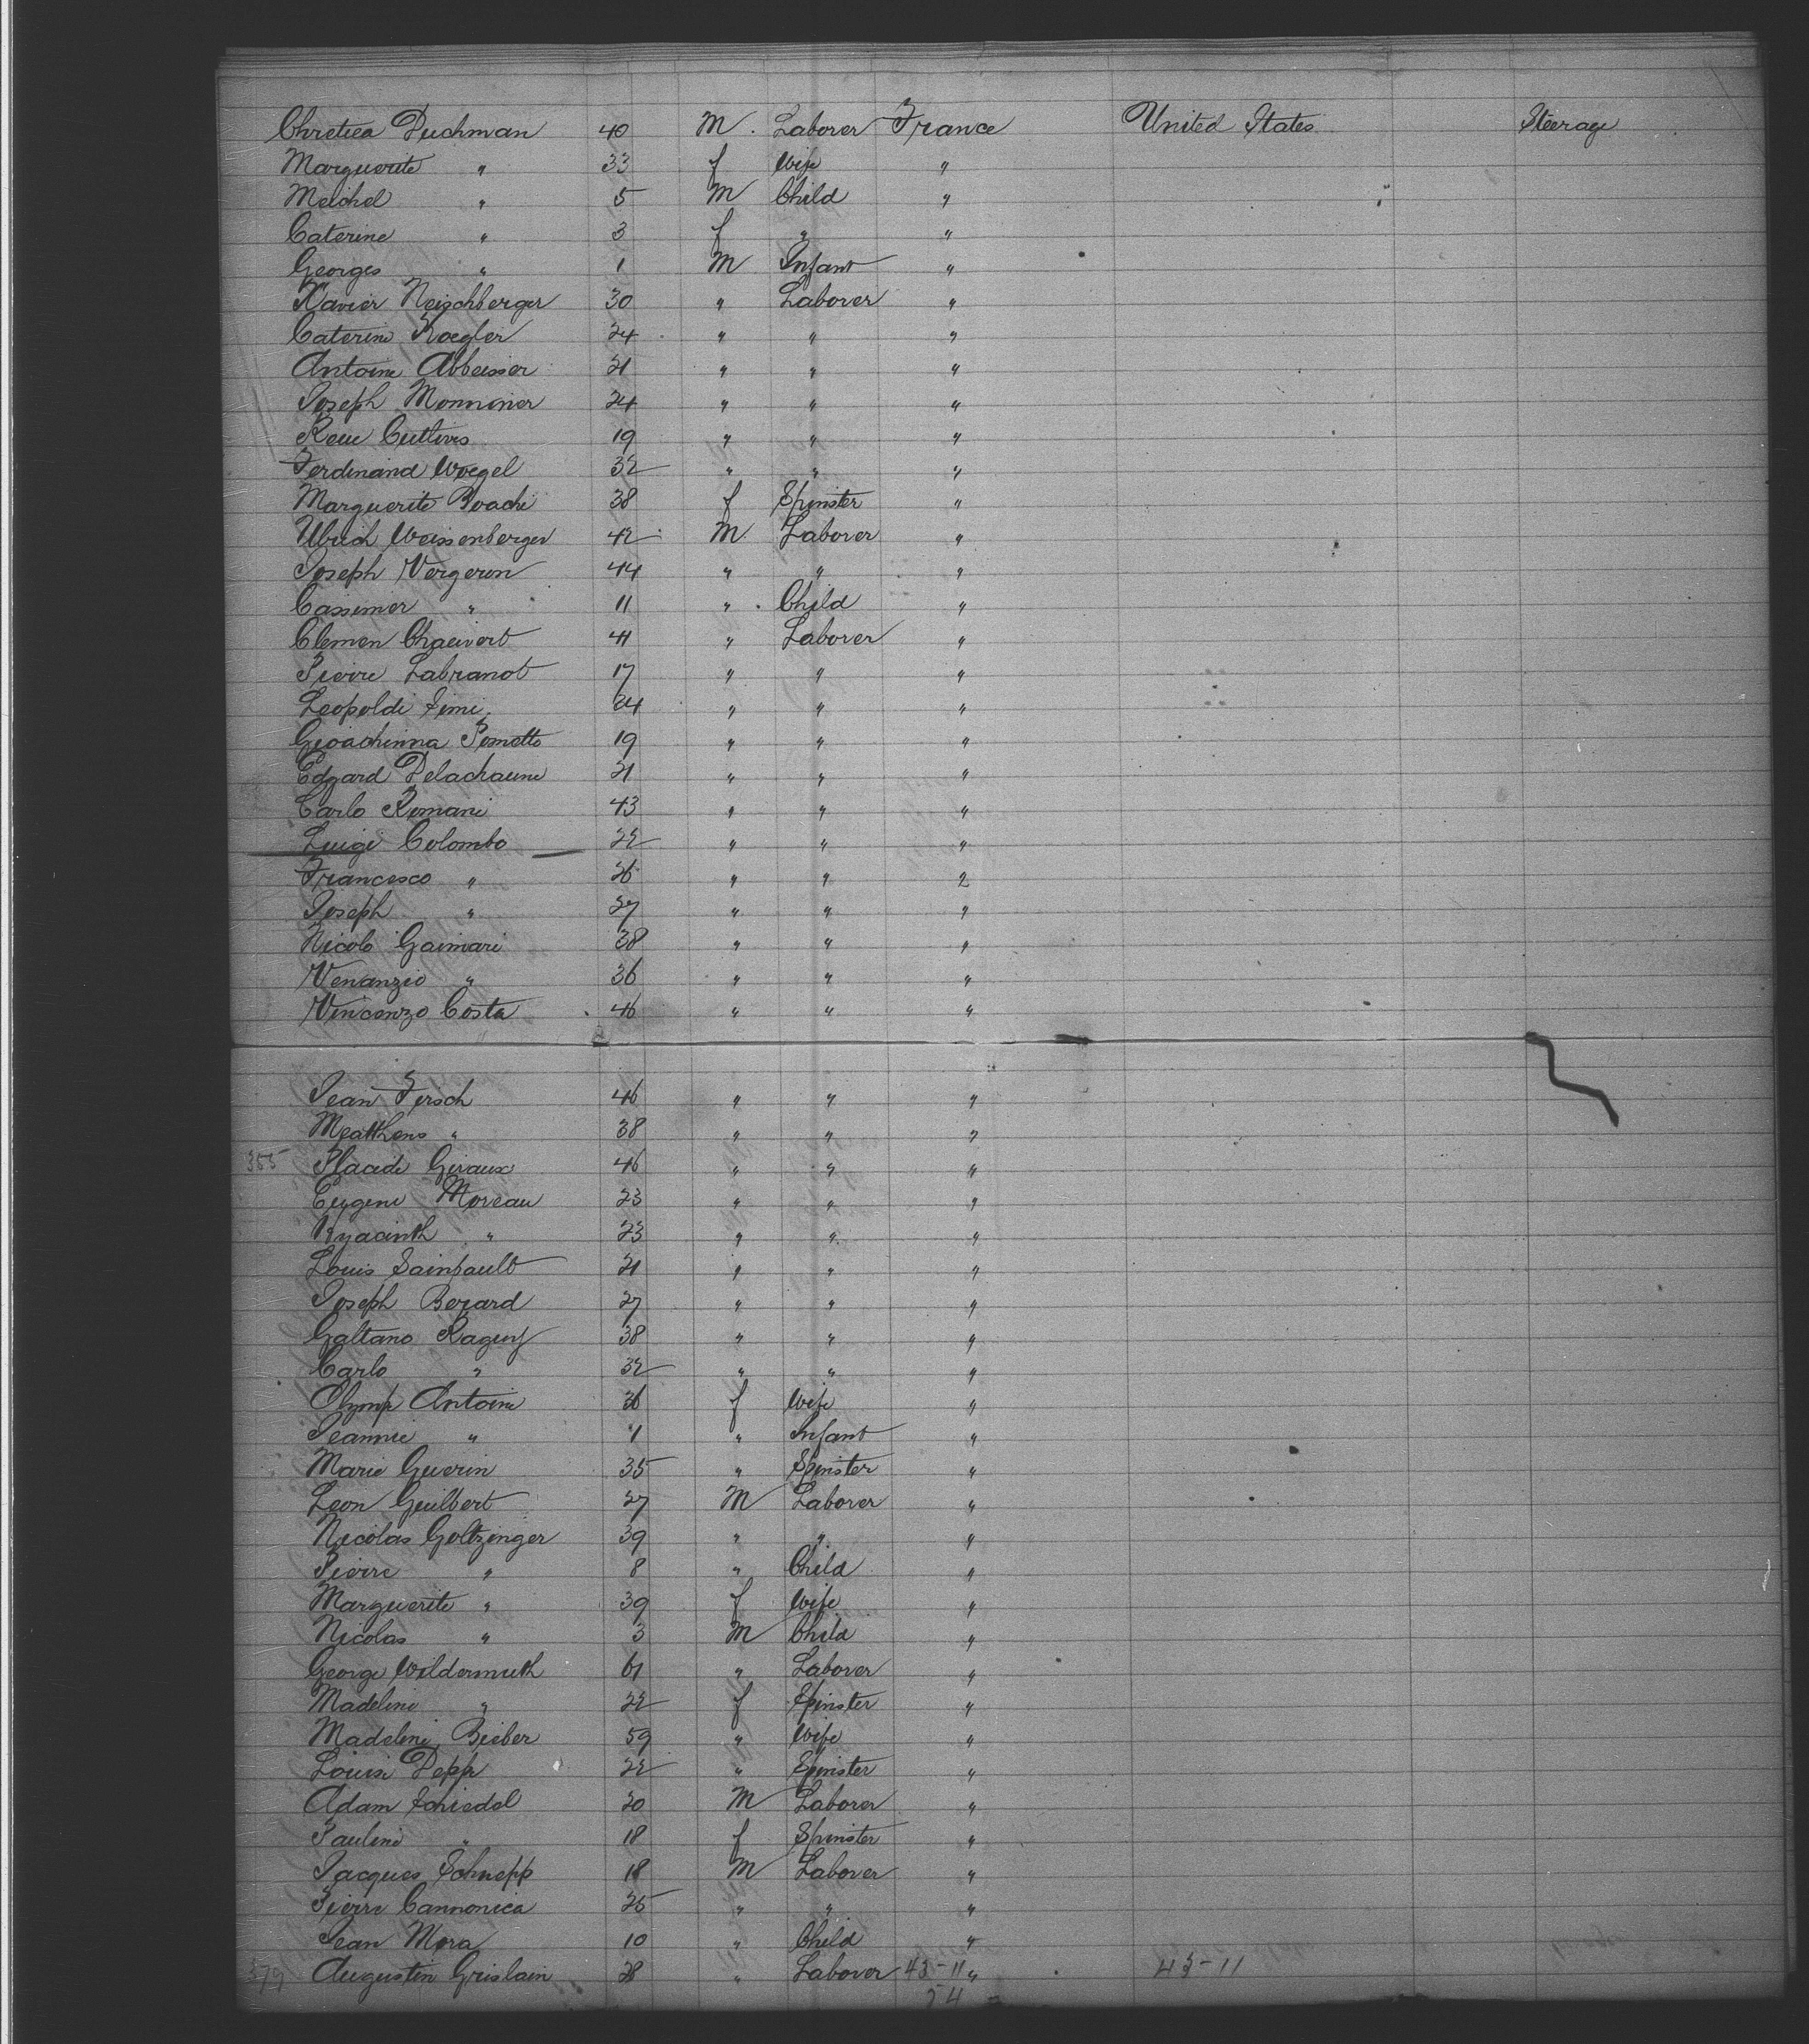 Chretiea Duchman 40 M. Laborer France United States Steerage
Marguerite " 33 f Wife "
Meichel " 5 M Child "
Caterine " 3 f " "
Georges " 1 M Infant "
Xavier Neigchberger 30 " Laborer "
Caterine Koegler 24 " " "
Antoine Abbeisser 21 " " "
Joseph Monnonier 24 " " "
19 " " "
Ferdinand Woegel 32 " " "
Marguerite Boache 38 f Spinster "
Ulrich Weissenberger 42 M Laborer "
Joseph Vergeron 44 " " "
Cassimer " 11 " Child "
Clemen Chaeivert 41 " Laborer "
Pierre Labranot 17 " " "
Leopoldi Simi 24 " " "
Gioachinna Pometto 19 " " "
Edgard Delachaume 21 " " "
Carlo Romani 43 " " "
Luigi Colombo 22 " " "
Francesco " 26 " " "
Joseph " 27 " " "
Nicolo Gaimari 38 " " "
Venanzio " 36 " " "
Vincenzo Costa 46 " " "
Jean Fersch 46 " " "
Matthens " 38 " " "
355 Placide Giraux 46 " " "
Eugene Moreau 23 " " "
Hyacinth " 23 " " "
Louis Sainsault 21 " " "
Joseph Berard 27 " " "
Galtano Raguy 38 " " "
Carlo " 32 " " "
Olymp Antoine 36 f Wife "
Jeannie " 1 " Infant "
Marie Guerin 35 " Spinster "
Leon Guilbert 27 M Laborer "
Nicolas Goltzinger 39 " " "
Pierre " 8 " Child "
Marguerite " 39 f Wife "
Nicolas " 3 M Child "
George Wildermuth 61 " Laborer "
Madeline " 22 f Spinster "
Madeline Bieber 59 " Wife "
Louise Depp 22 " Spinster "
Adam Schiedel 20 M Laborer "
Pauline " 18 f Spinster "
Jacques Schnepp 18 M Laborer "
Pierre Cannonica 25 " " "
Jean Mora 10 " Child "
379 Augustin Grislain 28 " Laborer 43-11 " 43-11
54